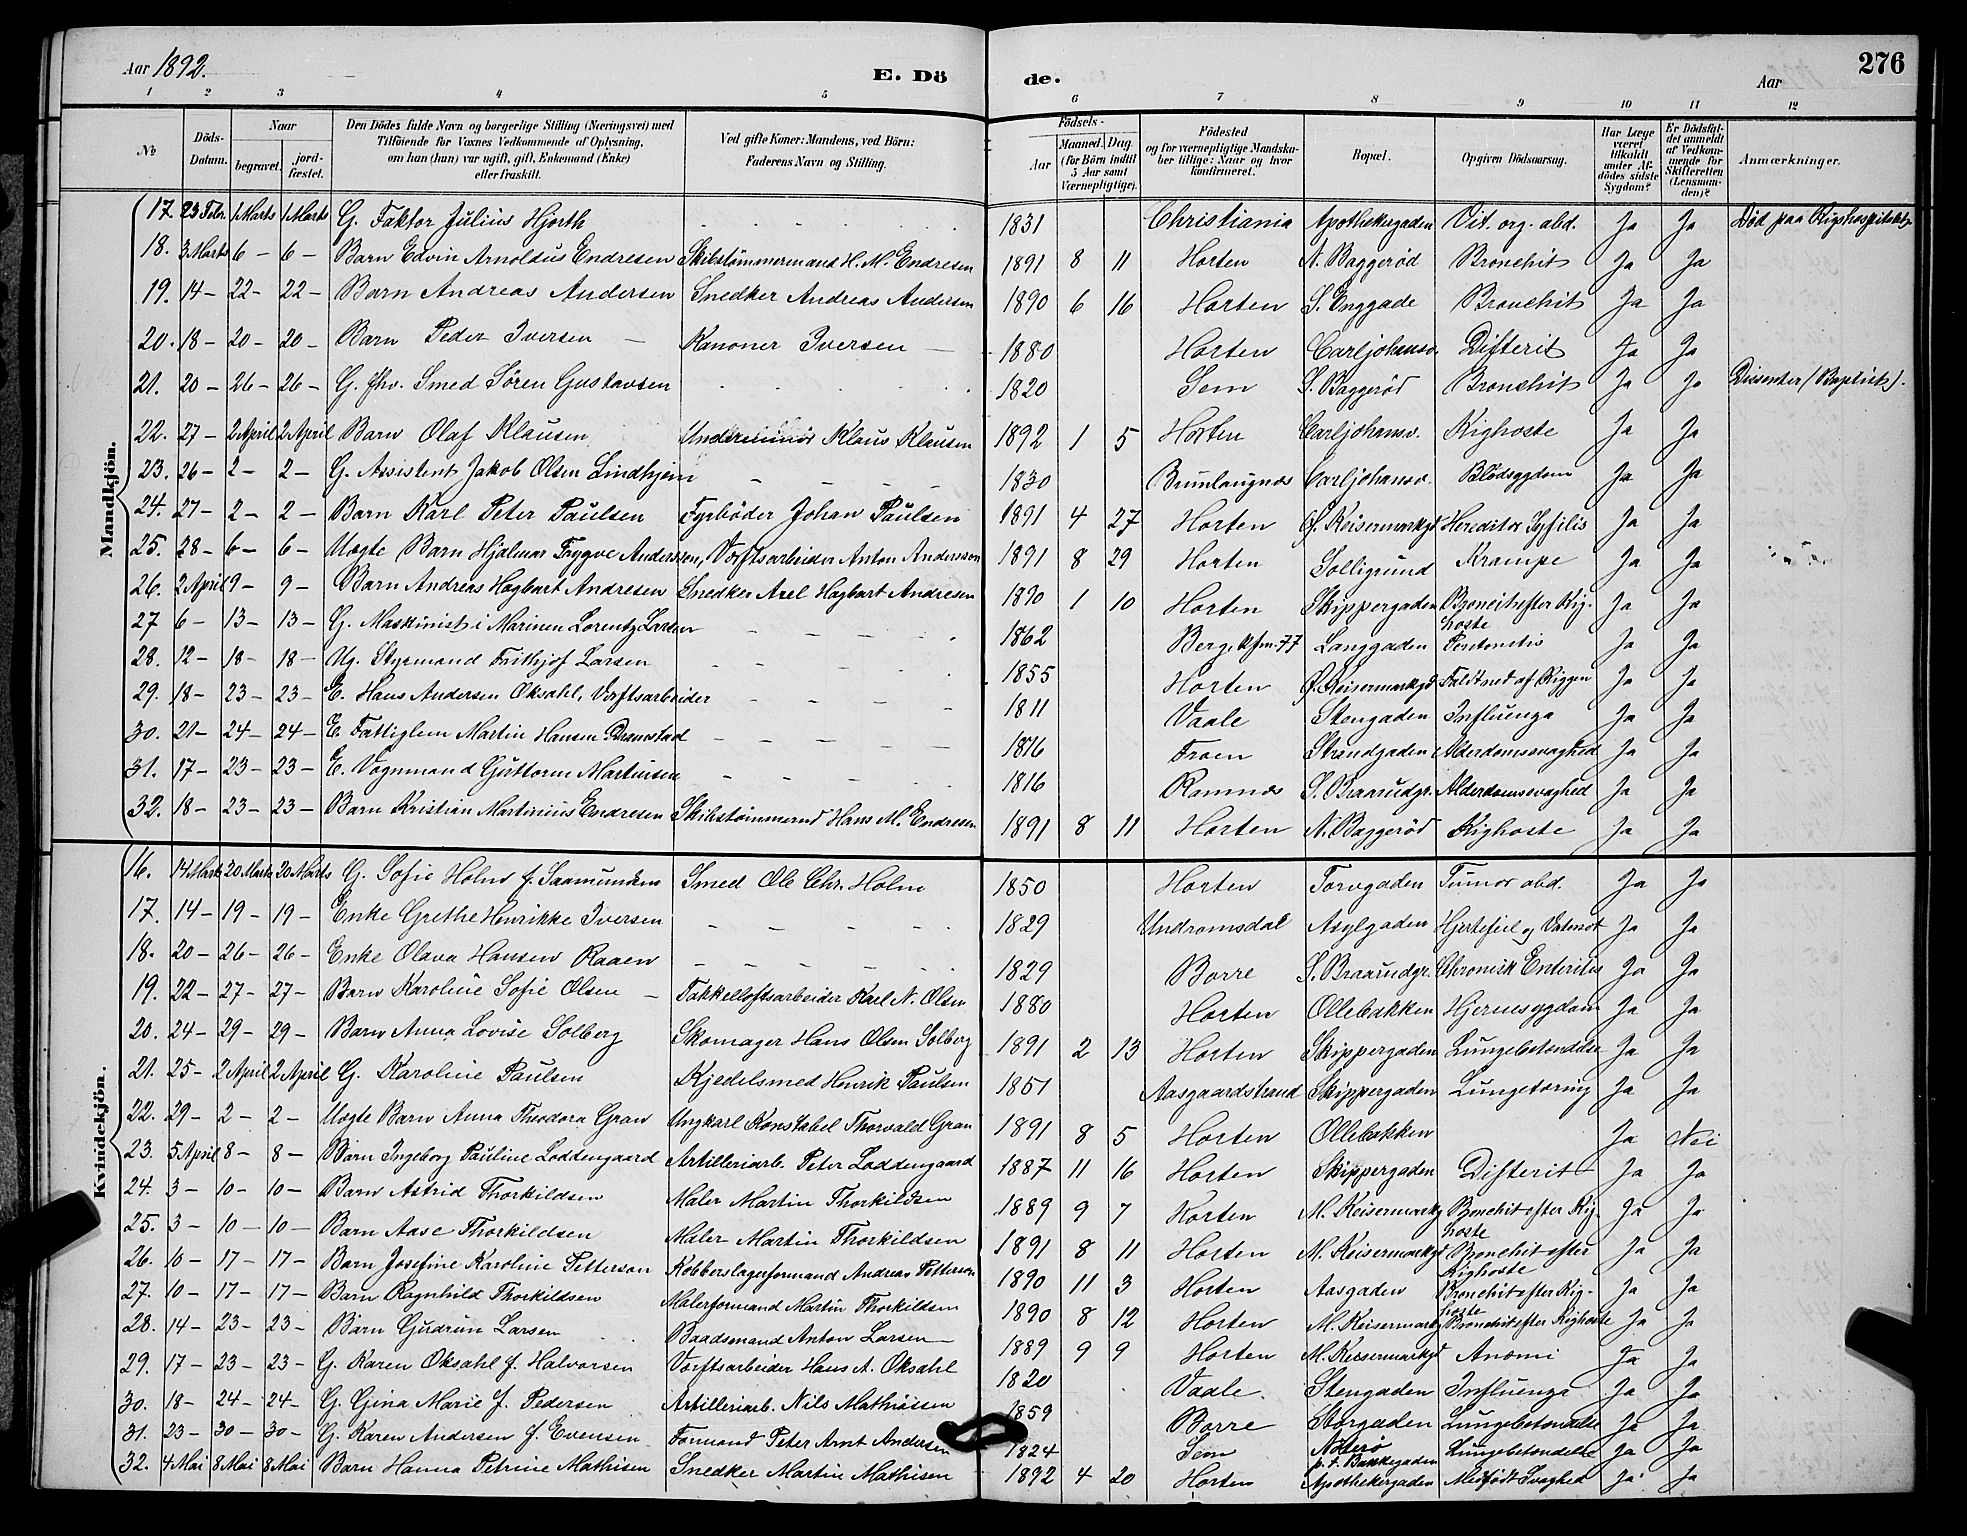 Aar 1892.
E. Dö
de.
Aar
276
1 2 3 4 5 6 7 8 9 10 11 12
№
Döds-Datum.
Naar
begravet.
jord-fæstet.
Den Dödes fulde Navn og borgerlige Stilling (Næringsvei) med
Tilföiende for Voxnes Vedkommende af Oplysning,
om han (hun) var ugift, gift, Enkemand (Enke)
eller fraskilt.
Ved gifte Koner: Mandens, ved Börn:
Faderens Navn og Stilling.
Födsels-
Aar
Maaned. Dag.
(for Börn indtil
5 Aar samt
Værnepligtige).
Födested
og for værnepligtige Mandska-
ber tillige: Naar og hvor
konfirmeret.
Bopæl.
Opgiven Dödsaarsag.
Har Læge
været
tilkaldt
under Af-
dödes sidste
Sygdom?
Er Dödsfal-
det anmeldt
af Vedkom-
mende for
Skifteretten
(Lensman-
den)?
Anmærkninger.
Mandkjön.
17 23 Febr. 1 Marts 1 Marts G. Faktor Julius Hjorth 1831 Christiania Apothekergaden Vit. org. abd. Ja Ja Död paa Rigshospitalet
18. 3 Marts 6 – 6 – Barn Edvin Arnoldus Endresen Skibstömmermand H. M. Endresen 1891 8 11 Horten N. Baggeröd Bronchit Ja Ja
19. 14 – 22 – 22 – Barn Andreas Andersen Snedker Andreas Andersen 1890 6 16 Horten S. Enggade Bronchit Ja Ja
20. 18 – 20 – 20 – Barn Peder Iversen – Kanoner Iversen – 1880 Horten Carljohansv. Difterit Ja Ja
21. 20 – 26 – 26 – G. fhv. Smed Sören Gustavsen 1820 Sem S. Baggeröd Bronchit Ja Ja Dissenter (Baptist).
22. 27 – 2 April 2 April Barn Olaf Klausen Klaus Klausen 1892 1 5 Horten Carljohansv. Kighoste Ja Ja
23. 26 – 2 – 2 – G. Assistent Jakob Olsen Lindhjem 1830 Brunlaugnæs Carljohansv. Blodsygdom Ja Ja
24. 27 – 2 – 2 – Barn Karl Peter Paulsen Fyrböder Johan Paulsen 1891 4 27 Horten Ø. Keisermarkgd Hereditær Syfilis Ja Ja
25. 28 – 6 – 6 – Uægte Barn Hjalmar Trygve Andersson, Værftsarbeider Anton Andersson 1891 8 29 Horten Solligrund Krampe Ja Ja
26. 2 April 9 – 9 – Barn Andreas Hagbart Andresen Snedker Axel Hagbart Andresen 1890 1 10 Horten Skippergaden Bronchit efter Kig-hoste Ja Ja
27 6 – 13 – 13 – G. Maskinist i Marinen Lorentz Larsen 1862 Berg, kfm. 77 Langgaden Peritonitis Ja Ja
28. 12 – 18 – 18 – Ug. Styrmand Frithjof Larsen 1855 Horten Ø. Keisermarkgd Faldt ned af Riggen Ja Ja
29. 18 – 23 – 23 – E. Hans Andersen Oksahl, Værftsarbeider 1811 Vaale Stengaden Influenza Ja Ja
30. 21 – 24 – 24 – E. Fattiglem Martin Hansen Bramstad 1816 Froen Strandgaden Alderdomssvaghed Ja Ja
31. 17 – 23 – 23 – E. Vognmand Guttorm Martinsen 1816 Ramnæs S. Braarudgr. Alderdomssvaghed Ja Ja
32. 18 – 23 – 23 – Barn Kristian Martinius Endresen Skibstömmermd Hans M. Endresen 1891 8 11 Horten N. Baggeröd Kighoste Ja Ja
Kvindekjön.
16. 14 Marts 20 Marts 20 Marts G. Sofie Holm f. Saamundsen Smed Ole Chr. Holm 1850 Horten Torvgaden Tumor abd. Ja Ja
17. 14 – 19 – 19 – Enke Grethe Henrikke Iversen 1829 Undrumsdal Asylgaden Hjertefeil og Vatersot Ja Ja
18. 20 – 26 – 26 – Enke Olava Hansen Raaen 1829 Borre S. Braarudgr. Chronisk Enteritis Ja Ja
19. 22 – 27 – 27 – Barn Karoline Sofie Olsen – Takkelloftsarbeider Karl N. Olsen 1880 Horten Ollebakken Hjernesygdom Ja Ja
20. 24 – 29 – 29 – Barn Anna Lovise Solberg Skomager Hans Olsen Solberg 1891 2 13 Horten Skippergaden Lungebetændelse Ja Ja
21. 25 – 2 April 2 April G. Karoline Paulsen Kjedelsmed Henrik Paulsen 1851 Aasgaardstrand Skippergaden Lungetæring Ja Ja
22. 29 – 2 – 2 – Uægte Barn Anna Theodora Gran Ungkarl Konstabel Thorvald Gran 1891 8 5 Horten Ollebakken Ja Nei
23. 5 April 8 – 8 – Barn Ingeborg Pauline Loddengaard Artilleriarb. Peter Loddengaard 1887 11 16 Horten Skippergaden Difterit Ja Ja
24. 3 – 10 – 10 – Barn Astrid Thorkildsen Maler Martin Thorkildsen 1889 9 7 Horten M. Keisermarkg Bronchit efter Kig-hoste Ja Ja
25. 3 – 10 – 10 – Barn Aase Thorkildsen Maler Martin Thorkildsen 1891 8 11 Horten M. Keisermarkgd Bronchit efter Kighoste Ja Ja
26. 10 – 17 – 17 – Barn Josefine Karoline Petterson Kobberslagerformand Andreas Petterson 1890 11 3 Horten Aasgaden Bronchit efter Kig-hoste Ja Ja
27. 10 – 17 – 17 – Barn Ragnhild Thorkildsen Malerformand Martin Thorkildsen 1890 8 12 Horten M. Keisermarkg Bronchit efter Kighoste Ja Ja
28. 14 – 23 – 23 – Barn Gudrun Larsen Baadsmand Anton Larsen 1889 9 9 Horten M. Keisermarkgd Anæmi Ja Ja
29. 17 – 23 – 23 – G. Karen Oksahl f. Halvorsen Værftsarbeider Hans A. Oksahl 1820 Vaale. Stengaden Influenza Ja Ja
30. 18 – 24 – 24 – G. Gina Marie f. Pedersen Artilleriarb. Nils Mathiassen 1859 Borre Storgaden Lungebetændelse Ja Ja
31. 23 – 30 – 30 – G. Karen Andersen f. Evensen Formand Peter Arnt Andersen 1824 Sem p. t. Bakkegaden Lungebetændelse Ja Ja
32. 4 Mai 8 Mai 8 Mai Barn Hanna Petrine Mathisen Snedker Martin Mathisen 1892 4 20 Horten Apothekergaden Medfödt Svaghed Ja Ja